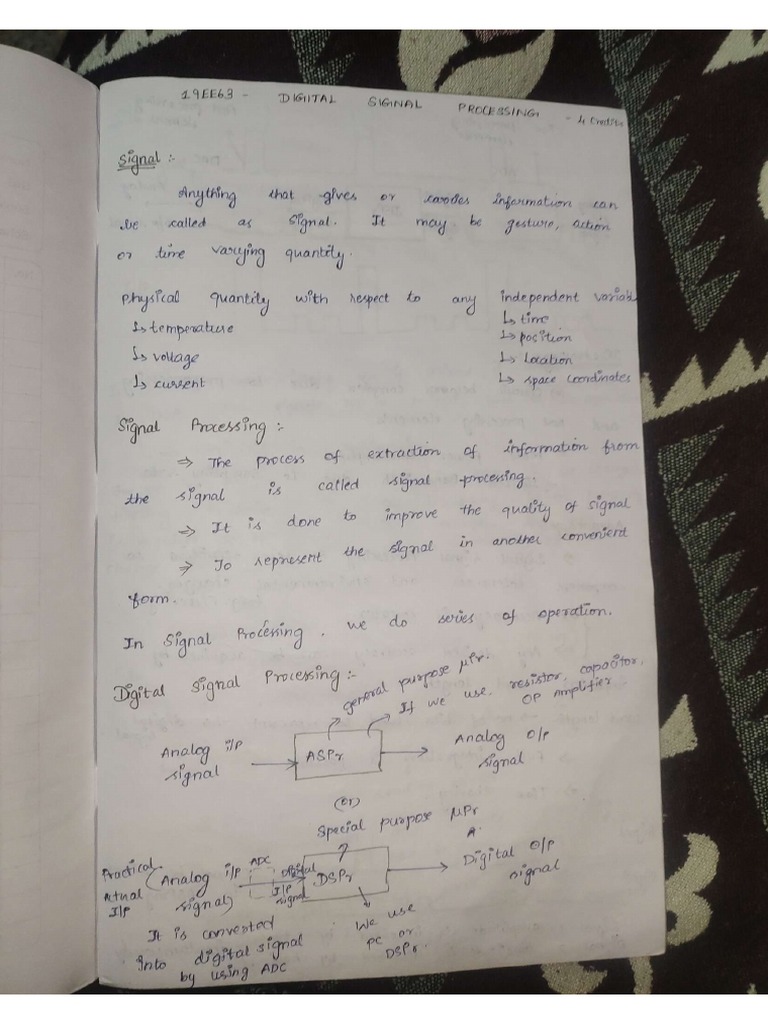 19EE63 - DIGITAL SIGNAL PROCESSING - 4 Credits
Signal :-
Anything that gives or carries information can
be called as signal. It may be gesture, action
or time varying quantity.
Physical quantity with respect to any independent variable
↳ temperature ↳ time
↳ position
↳ voltage ↳ location
↳ current ↳ space coordinates
Signal Processing :-
⇒ The process of extraction of information from
the signal is called signal processing.
⇒ It is done to improve the quality of signal
⇒ To represent the signal in another convenient
form.
In Signal Processing, we do series of operation.
Digital Signal Processing :-
general purpose μPr.
If we use resistor, capacitor,
OP amplifier
Analog i/p
signal
ASPr
Analog o/p
signal
(or)
Special purpose μPr
Practical
Actual
I/p
(Analog i/p
signal)
ADC
Digital
I/p
signal
DSPr
Digital o/p
signal
It is converted
into digital signal
by using ADC
We use
PC or
DSPr.